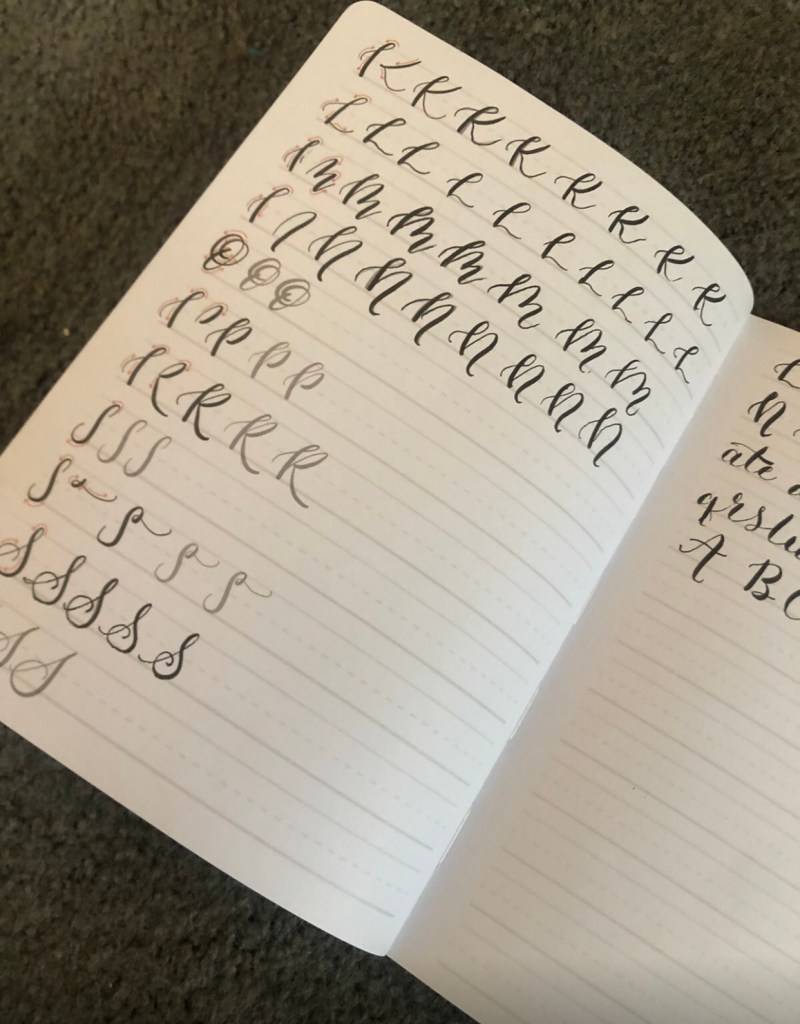 K K K K K K K K
L L L L L L L L L L
M M M M M M M
N N N N N N N
O O O
P P P
R R R R
S S S
S S S S
S S S S S
S S
L
N
ate
qrstu
A B C